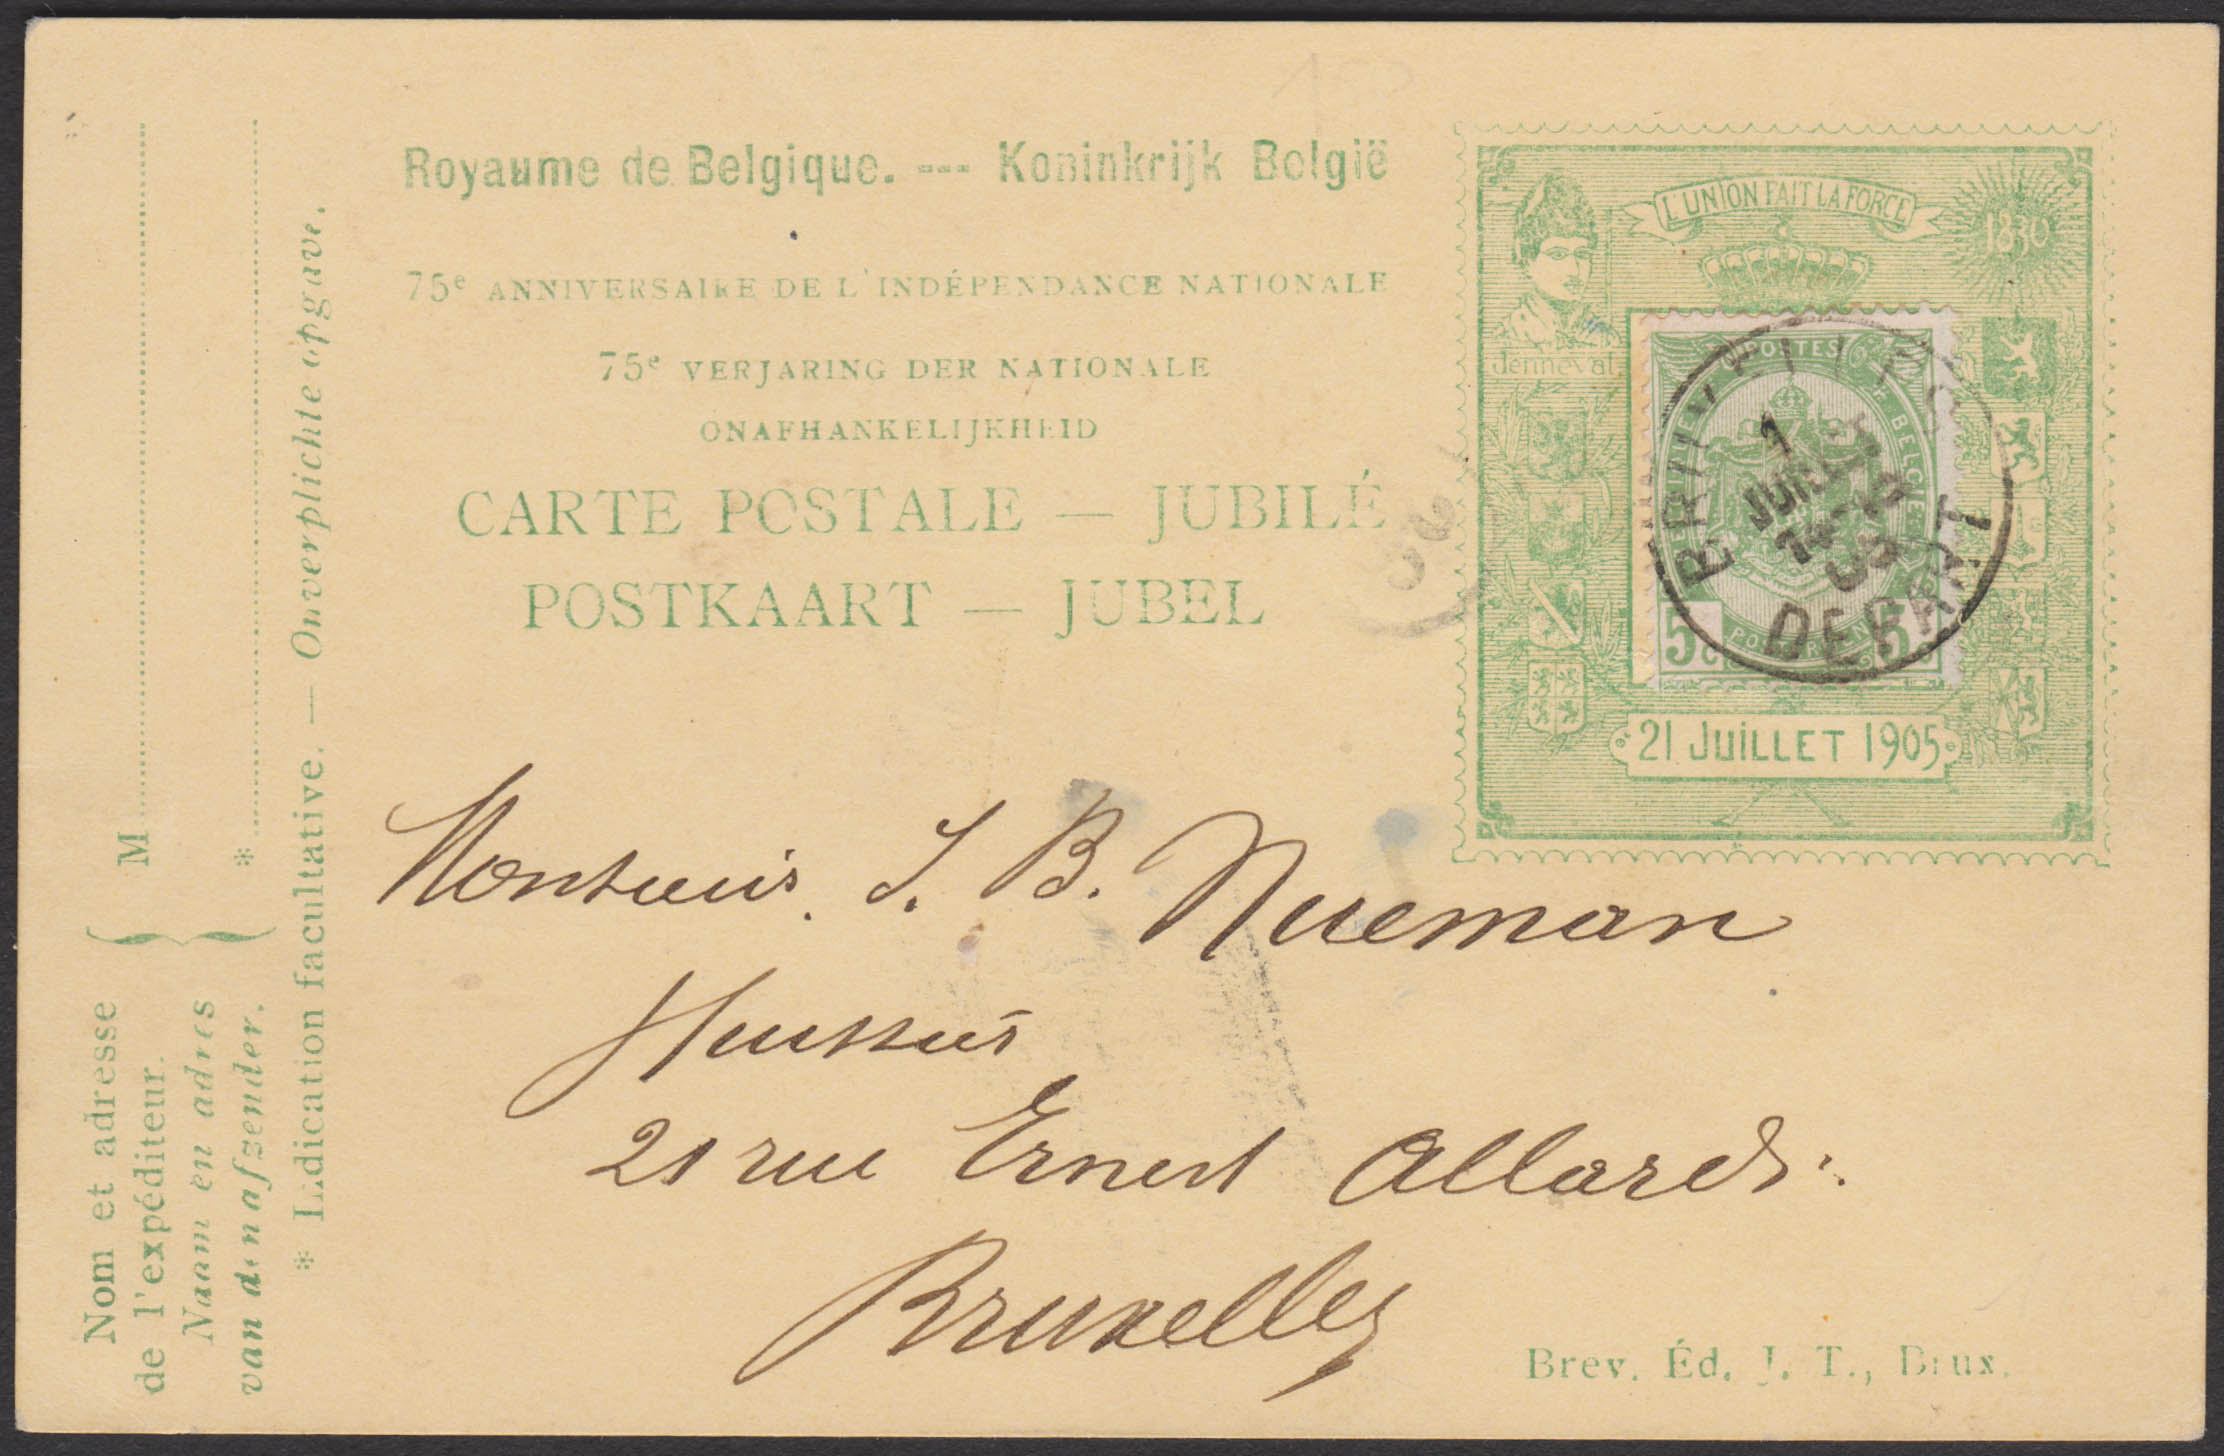 Royaume de Belgique. --- Koninkrijk België
75e ANNIVERSAIRE DE L'INDÉPENDANCE NATIONALE
75e VERJARING DER NATIONALE
ONAFHANKELIJKHEID
CARTE POSTALE — JUBILÉ
POSTKAART — JUBEL
L'UNION FAIT LA FORCE
1830
Jenneval
POSTES
BRUXELLES
1
JUIL
05
DEPART
5 5
21 JUILLET 1905
J. B. Nueman
21 rue Ernest Allard
Bruxelles
Brev. Éd. J. T., Brux.
Nom et adresse
de l'expéditeur.
Naam en adres
van den afzender.
M
*
* Indication facultative. — Onverplichte opgave.